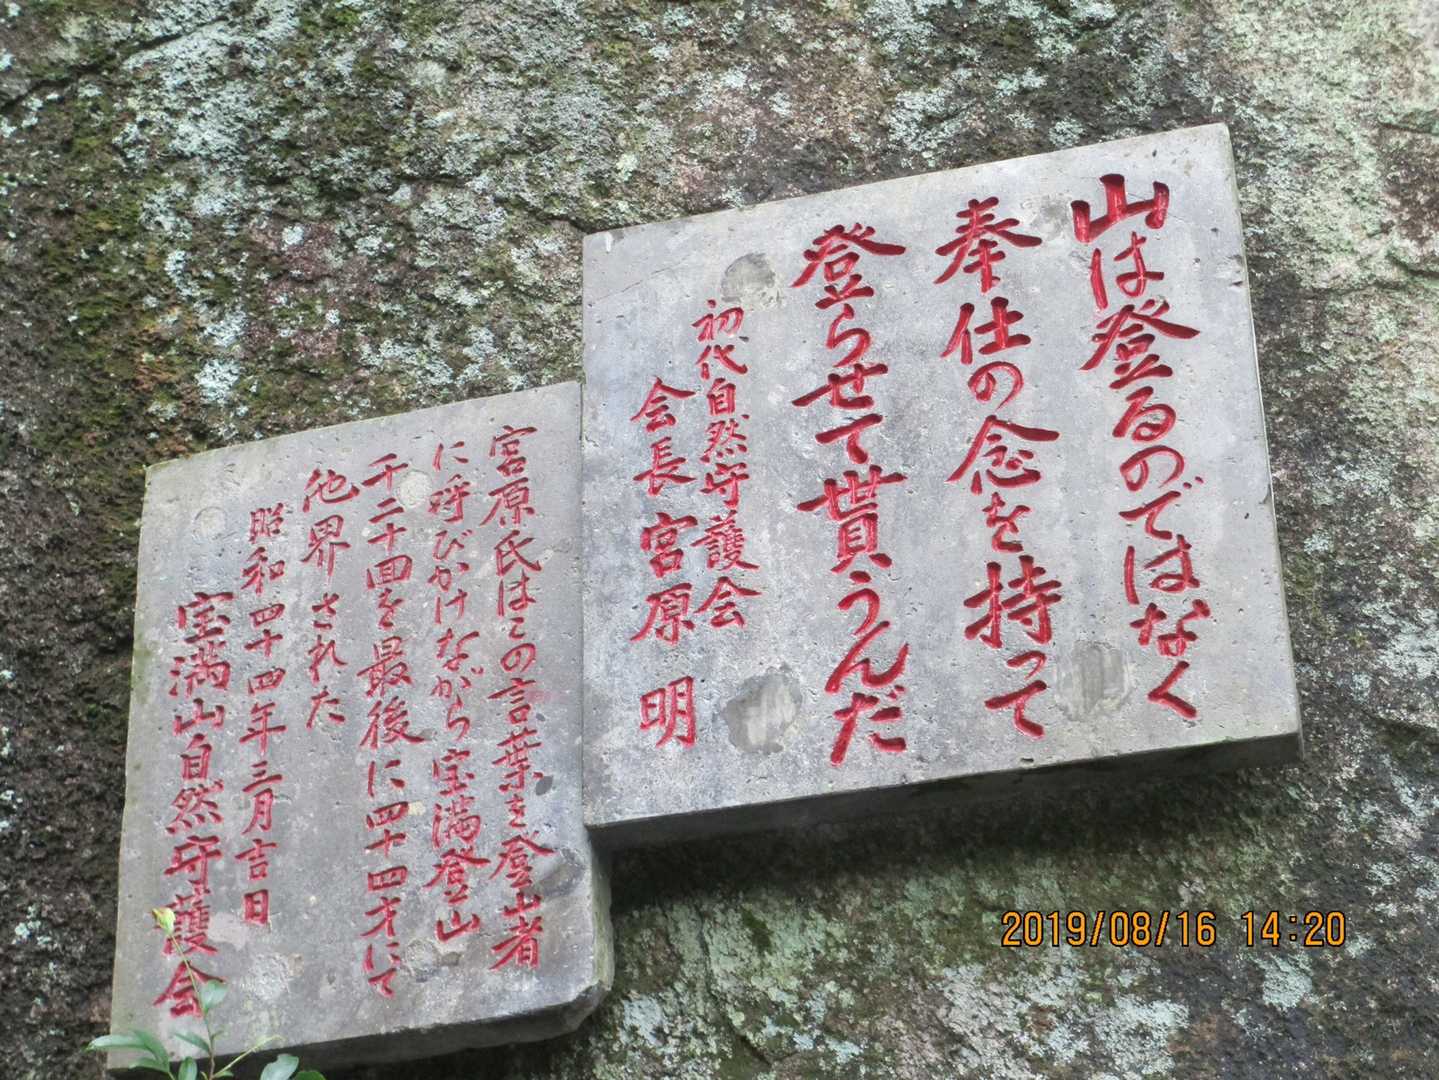 山は登るのではなく
奉仕の念を持って
登らせて貰うんだ
初代自然守護会
会長 宮原 明
宮原氏はこの言葉を登山者
に呼びかけながら宝満登山
千二十回を最後に四十四才にて
他界された
昭和四十四年三月吉日
宝満山自然守護会
2019/08/16 14:20